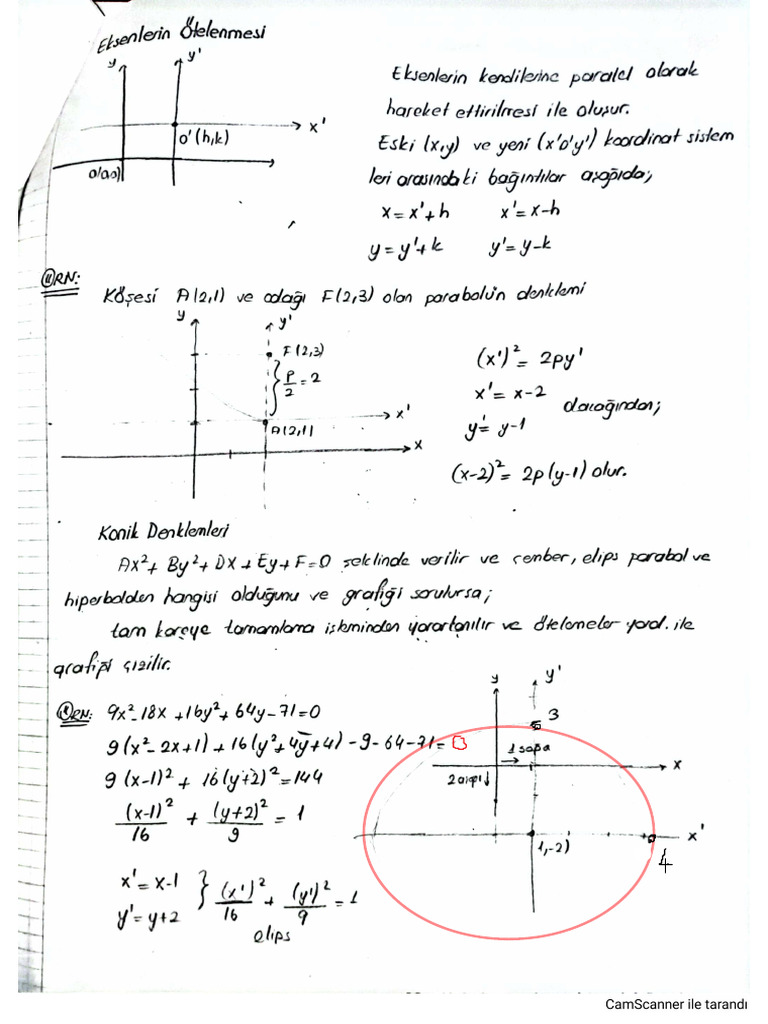 Eksenlerin Ötelenmesi
y
y'
x'
O'(h,k)
O(0,0)
Eksenlerin kendilerine paralel olarak
hareket ettirilmesi ile oluşur.
Eski (x,y) ve yeni (x'o'y') koordinat sistem
leri arasındaki bağıntılar aşağıda;
x = x'+h x'= x-h
y = y'+k y'= y-k
ÖRN:
Köşesi A(2,1) ve odağı F(2,3) olan parabolün denklemi
y
y'
F(2,3)
P/2 = 2
x'
A(2,1)
x
(x')² = 2py'
x'= x-2
olacağından;
y'= y-1
(x-2)² = 2p(y-1) olur.
Konik Denklemleri
Ax²+ By²+ Dx + Ey + F = 0 şeklinde verilir ve çember, elips parabol ve
hiperbolden hangisi olduğunu ve grafiği sorulursa;
tam kareye tamamlama işleminden yararlanılır ve ötelemeler yard. ile
grafiği çizilir.
ÖRN: 9x²-18x+16y²+64y-71=0
9(x²-2x+1)+16(y²+4y+4)-9-64-71=0
9(x-1)²+16(y+2)²=144
(x-1)²/16 + (y+2)²/9 = 1
x'= x-1
y'= y+2
(x')²/16 + (y')²/9 = 1
elips
y
y'
3
1 sağa
x
2 aşağı ↓
1,-2)
x'
4
CamScanner ile tarandı